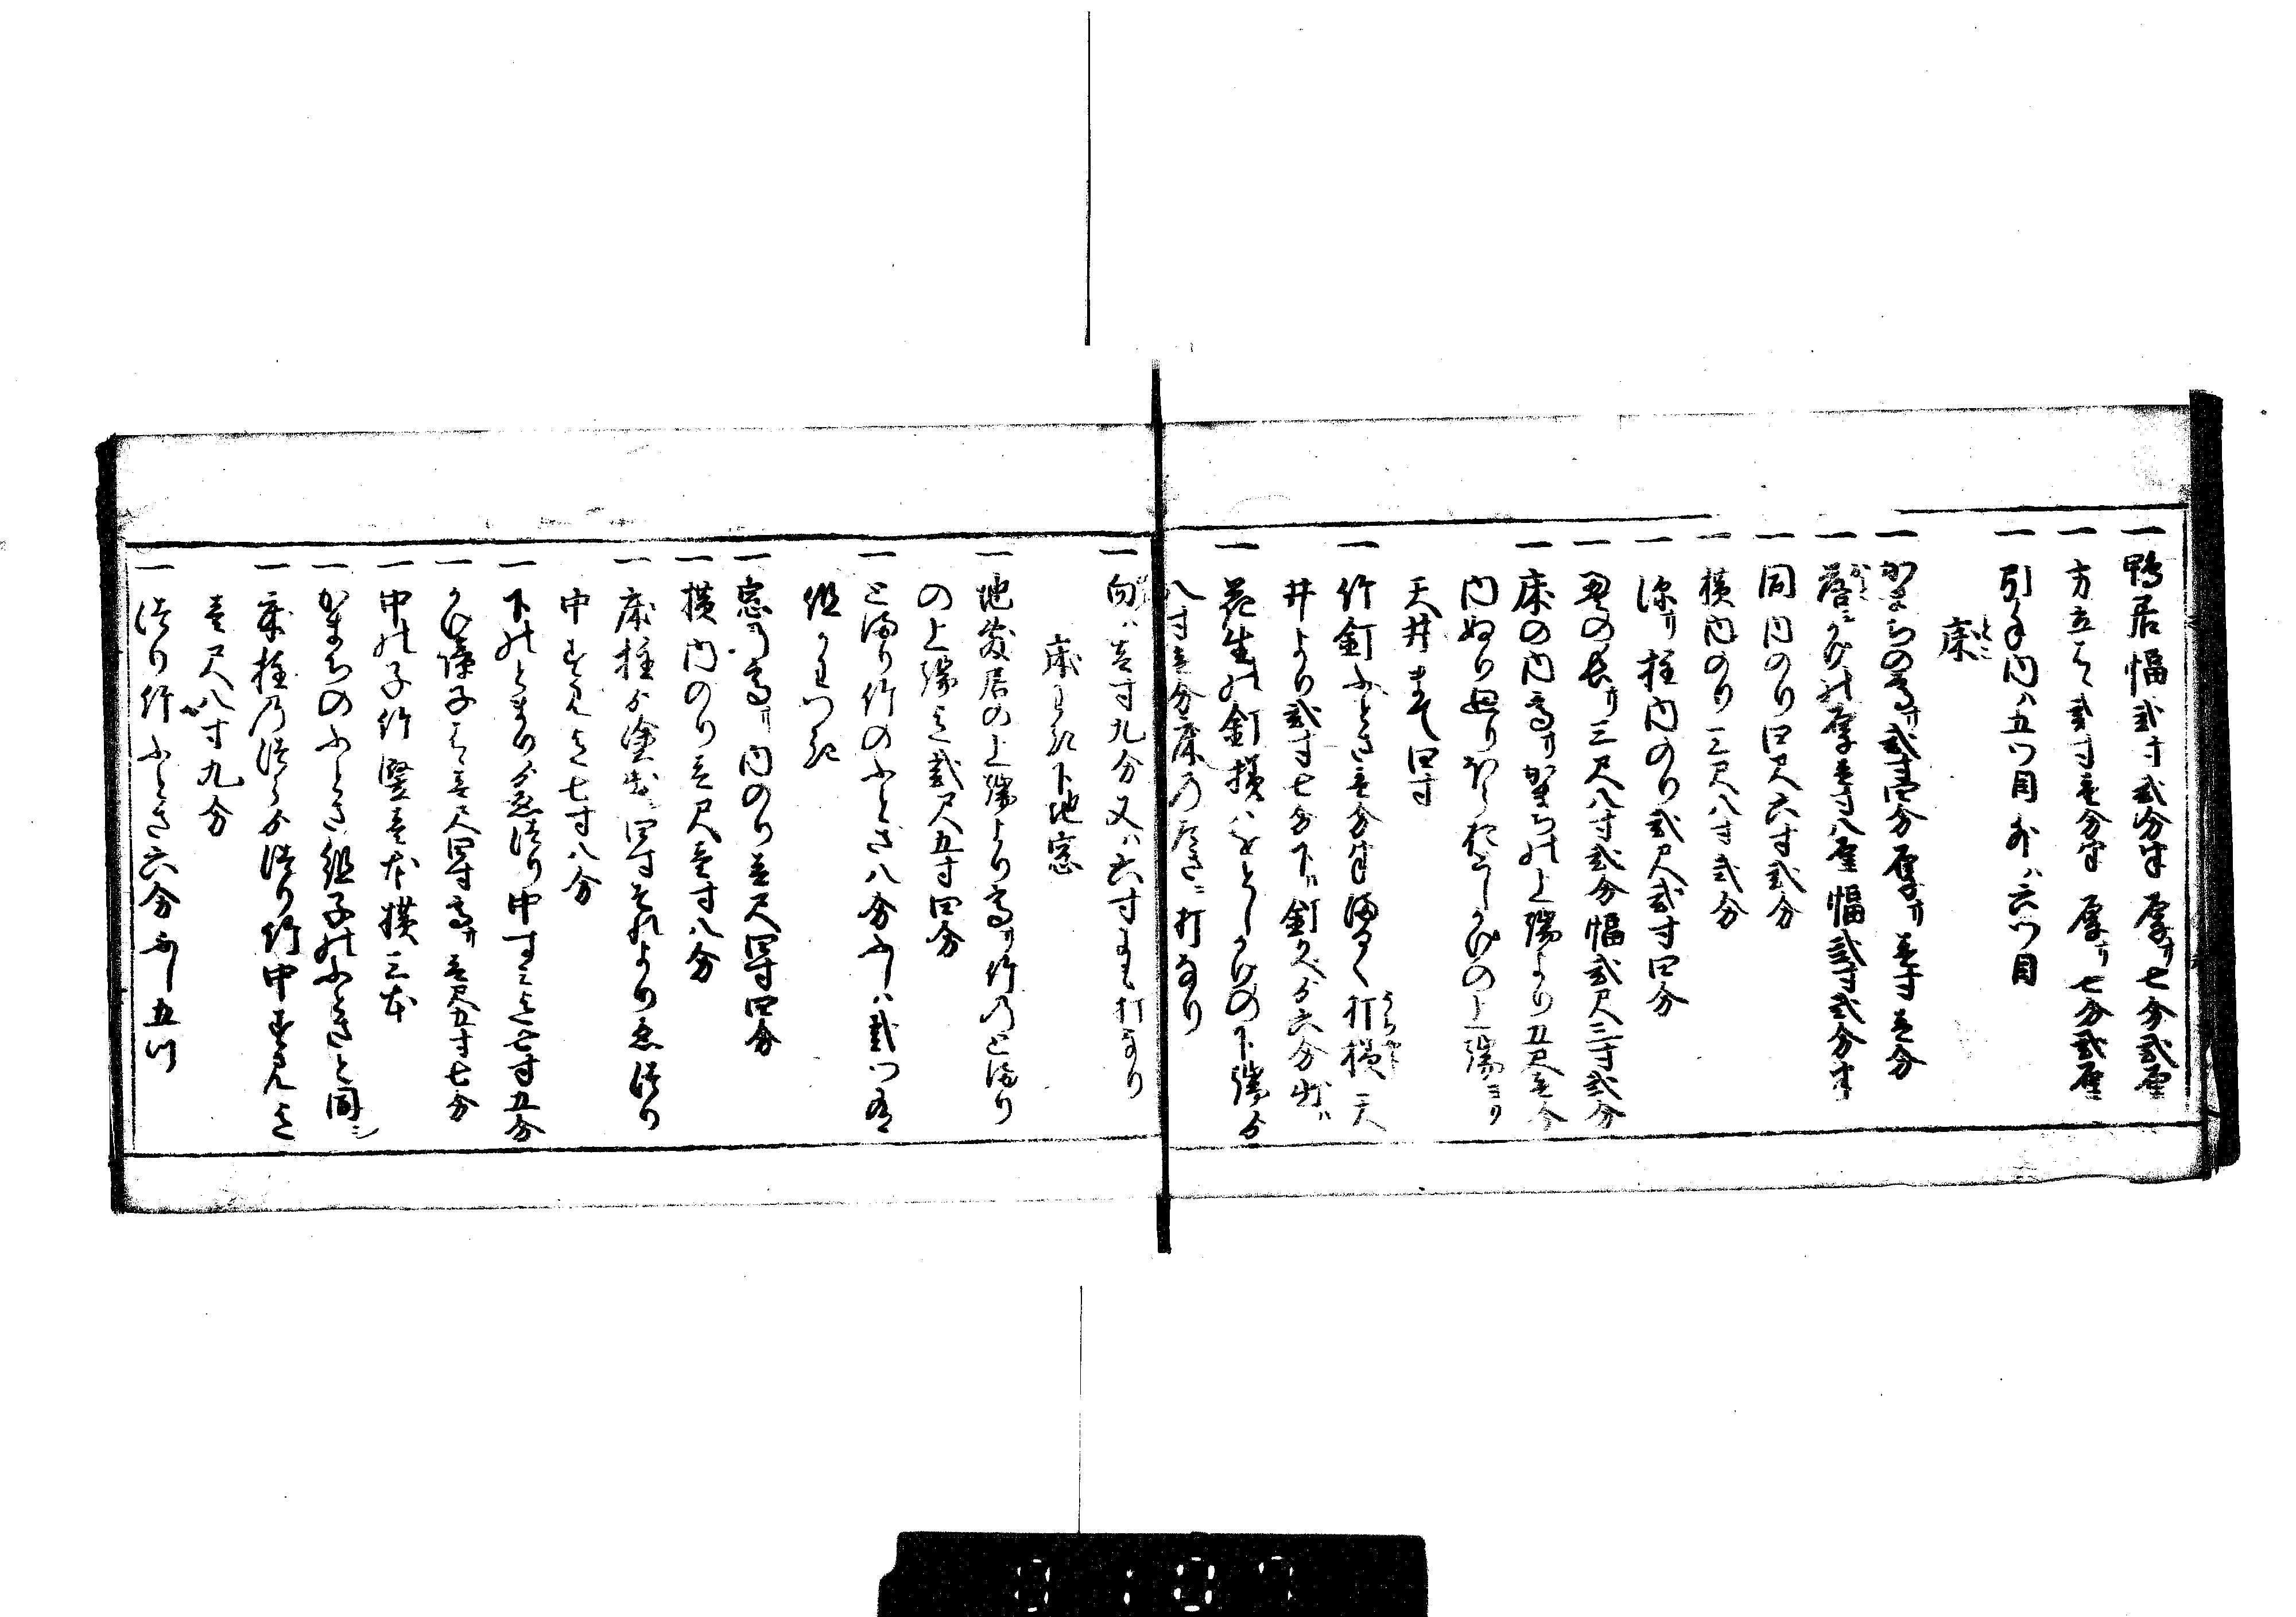 一鴨居幅弐寸弐分半厚サ七分弐厘
一方立ハ弐寸壱分半厚サ七分弐厘
一引手内ハ五ツ目外ハ六ツ目
床
一かまちの高サ弐寸四分厚サ壱寸壱分
一落しかけの厚壱寸八厘幅弐寸弐分半
一同内のり四尺六寸弐分
一横内のり三尺八寸弐分
一深サ柱内のり弐尺弐寸四分
一畳の長サ三尺八寸弐分幅弐尺三寸弐分
一床の内高サかまちの上端より五尺壱分
内ぬり廻りおとしかけの上端ヨリ
天井まて四寸
一竹釘ふとさ壱分半まるく打様天
井より弐寸七分下ケ釘くべ六分出ス
一花生の釘横ハおとしかけの下端より
八寸壱分床の高さニ打なり
一向ハ壱寸九分又ハ六寸にも打なり
床わき下地窓
一地敷居の上端より高サ竹のとまり
の上端迄弐尺五寸四分
一とまり竹のふとさ八分ふしハ弐ツ有
組かわつき
一窓ノ高サ内のり壱尺四寸四分
一横内のり壱尺壱寸八分
一床柱より塗出シ四寸それよりゑつり
中すみ迄七寸八分
一下のとまりよりゑつり中すミ迄七寸五分
一かけ障子ハ壱尺四寸高サ壱尺五寸七分
一中の子竹竪壱本横三本
一かまちのふとさ組子のふとさと同シ
一床柱のつらよりつり竹中すみ迄
壱尺八寸九分
一つり竹ふとさ六分ふし五ツ